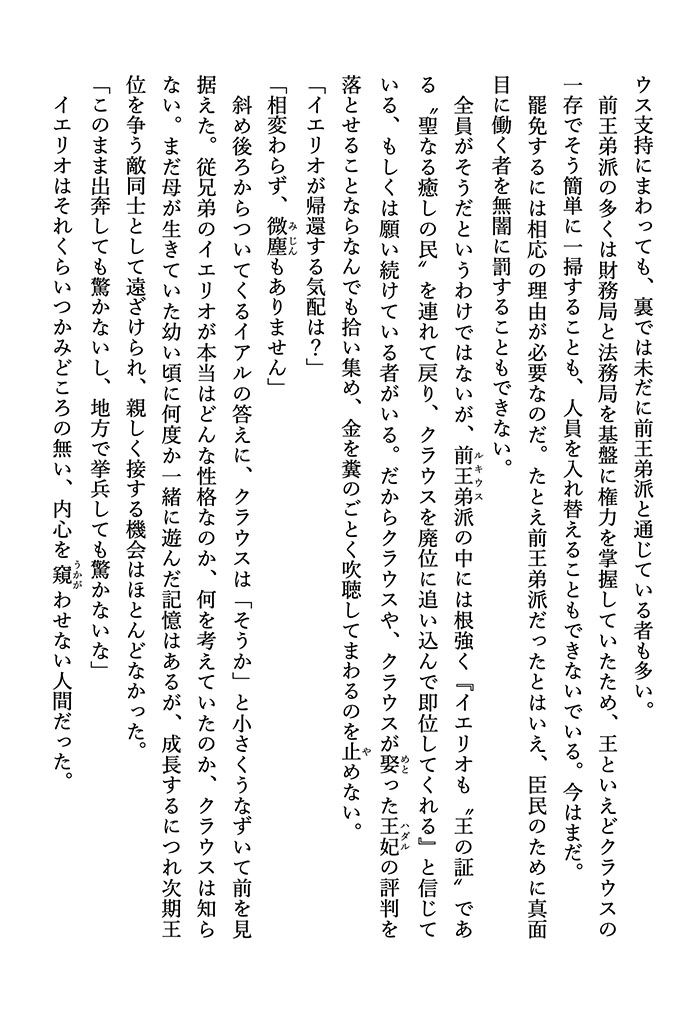 ウス支持にまわっても、裏では未だに前王弟派と通じている者も多い。
　前王弟派の多くは財務局と法務局を基盤に権力を掌握していたため、王といえどクラウスの
一存でそう簡単に一掃することも、人員を入れ替えることもできないでいる。今はまだ。
　罷免するには相応の理由が必要なのだ。たとえ前王弟派だったとはいえ、臣民のために真面
目に働く者を無闇に罰することもできない。
　全員がそうだというわけではないが、前王弟派の中には根強く『イエリオも〝王の証〟であ
ルキウス
る〝聖なる癒しの民〟を連れて戻り、クラウスを廃位に追い込んで即位してくれる』と信じて
いる、もしくは願い続けている者がいる。だからクラウスや、クラウスが娶った王妃の評判を
めと
ハダル
落とせることならなんでも拾い集め、金を糞のごとく吹聴してまわるのを止めない。
や
「イエリオが帰還する気配は？」
「相変わらず、微塵もありません」
みじん
　斜め後ろからついてくるイアルの答えに、クラウスは「そうか」と小さくうなずいて前を見
据えた。従兄弟のイエリオが本当はどんな性格なのか、何を考えていたのか、クラウスは知ら
ない。まだ母が生きていた幼い頃に何度か一緒に遊んだ記憶はあるが、成長するにつれ次期王
位を争う敵同士として遠ざけられ、親しく接する機会はほとんどなかった。
「このまま出奔しても驚かないし、地方で挙兵しても驚かないな」
　イエリオはそれくらいつかみどころの無い、内心を窺わせない人間だった。
うかが